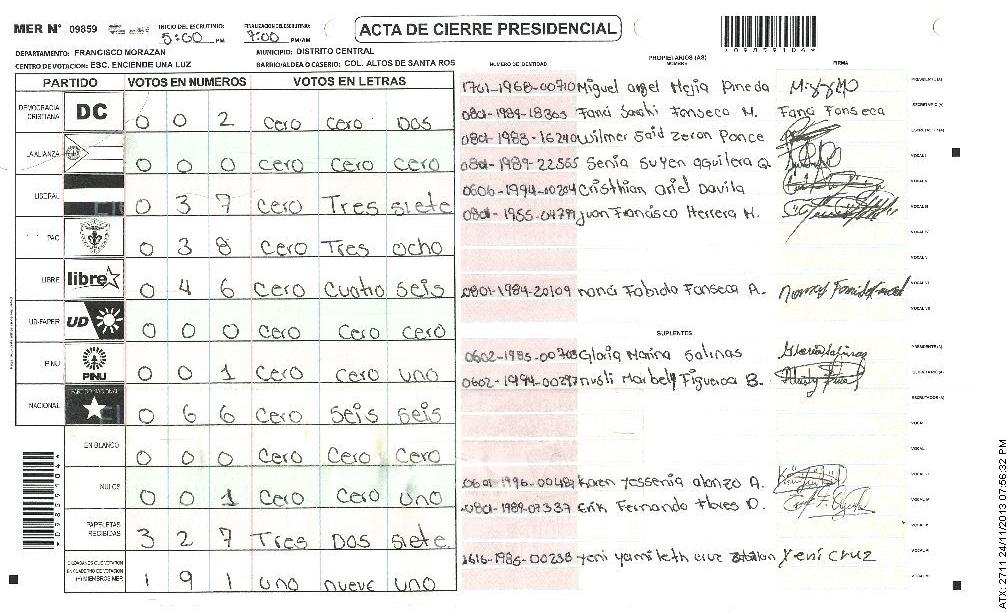 MER N° 09859 INICIO DEL ESCRUTINIO: 5:00 PM FINALIZACION DEL ESCRUTINIO: 7:00 PM/AM ACTA DE CIERRE PRESIDENCIAL *09859104*
DEPARTAMENTO: FRANCISCO MORAZAN MUNICIPIO: DISTRITO CENTRAL
CENTRO DE VOTACION: ESC. ENCIENDE UNA LUZ BARRIO/ALDEA O CASERIO: COL. ALTOS DE SANTA ROS
PARTIDO VOTOS EN NUMEROS VOTOS EN LETRAS
DEMOCRACIA CRISTIANA DC 0 0 2 cero cero Dos
LA ALIANZA 0 0 0 cero cero cero
LIBERAL 0 3 7 cero Tres siete
PAC 0 3 8 cero Tres ocho
LIBRE libre 0 4 6 cero cuatro seis
UD-FAPER UD 0 0 0 cero cero cero
PINU PINU 0 0 1 cero cero uno
NACIONAL 0 6 6 cero seis seis
EN BLANCO 0 0 0 cero cero cero
NULOS 0 0 1 cero cero uno
PAPELETAS RECIBIDAS 3 2 7 Tres Dos siete
1 9 1 uno nueve uno
NUMERO DE IDENTIDAD PROPIETARIOS (AS) NOMBRE FIRMA
1701-1968-00710 Miguel angel Mejia Pineda PRESIDENTE(A)
0801-1989-18303 Fanci Sarahi Fonseca M. Fanci Fonseca SECRETARIO(A)
0801-1983-16240 Wilmer Said Zeron Ponce ESCRUTADOR(A)
0801-1989-22565 Senia Suyen aguilera G. VOCAL I
0606-1994-00204 Cristhian ariel Davila VOCAL II
0801-1955-04799 Juan Francisco Herrera M. VOCAL III
VOCAL IV
VOCAL V
0801-1984-20109 nanci Fabiola Fonseca A. VOCAL VI
VOCAL VII
SUPLENTES
0602-1985-00703 Gloria Marina Salinas PRESIDENTE(A)
0602-1994-00297 nusli Marbely Figueroa B. SECRETARIO(A)
ESCRUTADOR(A)
VOCAL I
VOCAL II
0601-1996-00482 Karen Yessenia alonzo A.
0801-1989-07337 Erik Fernando Flores D.
1616-1986-00238 Yeni yamileth cruz Yeni cruz
*09859104*
ATX: 2711 24/11/2013 07:56:32 PM